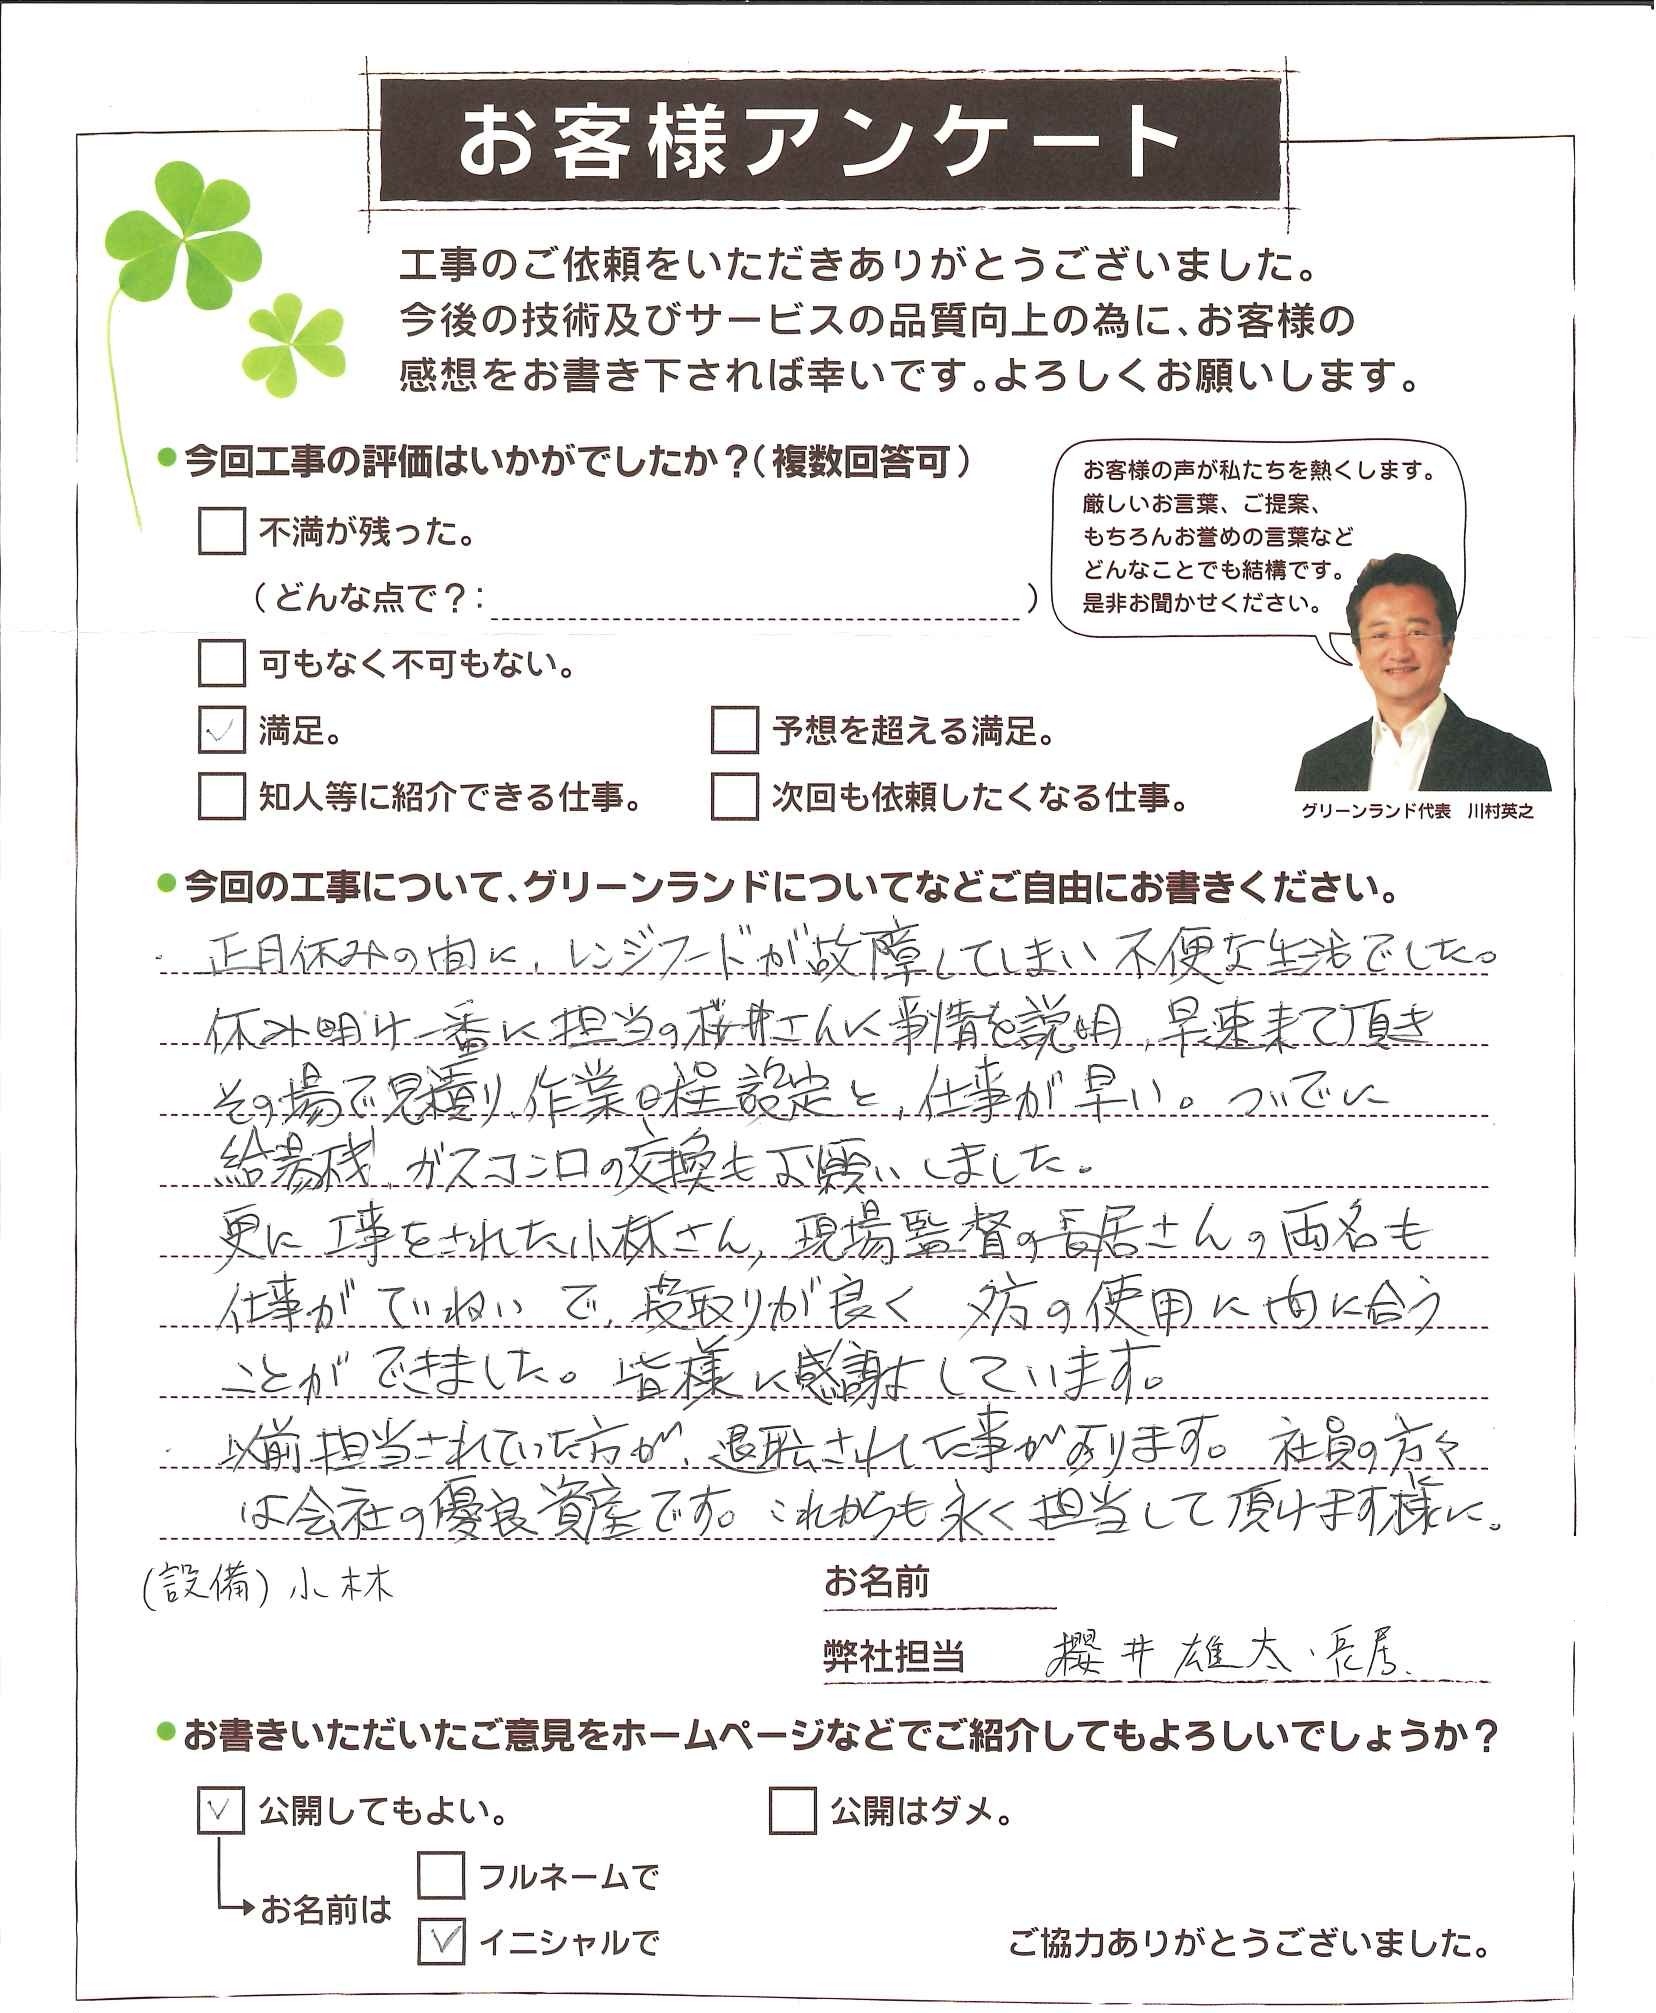 お客様アンケート
工事のご依頼をいただきありがとうございました。
今後の技術及びサービスの品質向上の為に、お客様の
感想をお書き下されば幸いです。よろしくお願いします。
●今回工事の評価はいかがでしたか？（複数回答可）
お客様の声が私たちを熱くします。
厳しいお言葉、ご提案、
もちろんお誉めの言葉など
どんなことでも結構です。
是非お聞かせください。
不満が残った。
（どんな点で？：　）
可もなく不可もない。
満足。
予想を超える満足。
知人等に紹介できる仕事。
次回も依頼したくなる仕事。
グリーンランド代表　川村英之
●今回の工事について、グリーンランドについてなどご自由にお書きください。
・正月休みの間に、レンジフードが故障してしまい不便な生活でした。
休み明け一番に担当の桜井さんに事情を説明、早速来て頂き
その場で見積り、作業日程設定と、仕事が早い。ついでに
給湯機、ガスコンロの交換もお願いしました。
更に工事をされた小林さん、現場監督の長居さんの両名も
仕事がていねいで、段取りが良く 夕方の使用に間に合う
ことができました。皆様に感謝しています。
・以前担当されていた方が、退職された事があります。社員の方々
は会社の優良資産です。これからも永く担当して頂けます様に。
(設備) 小林
お名前
弊社担当　櫻井雄太・長居
●お書きいただいたご意見をホームページなどでご紹介してもよろしいでしょうか？
公開してもよい。
公開はダメ。
お名前は
フルネームで
イニシャルで
ご協力ありがとうございました。